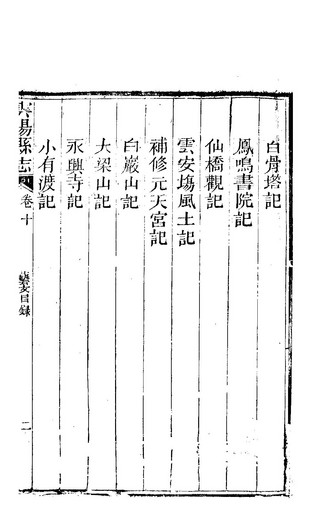 白骨塔記
鳳鳴書院記
仙橋觀記
雲安塲風土記
補修元天宮記
白巖山記
大梁山記
永興寺記
小有渡記
陽縣志
卷十
藝文目錄
二